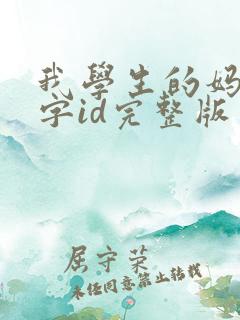 我學生的妈
字id完整版
屈守荣
未经同意禁止转载